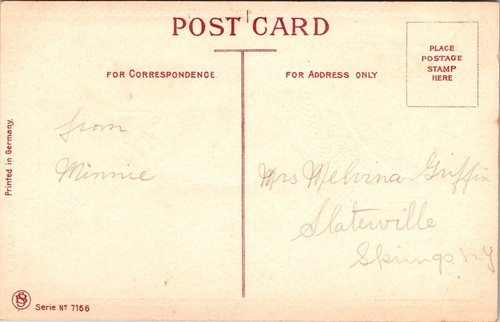 POST CARD
PLACE
POSTAGE
STAMP
HERE
FOR CORRESPONDENCE
FOR ADDRESS ONLY
from
Minnie
Mrs Melvina Griffin
Slaterville
Springs NY
Printed in Germany.
Serie No 7166